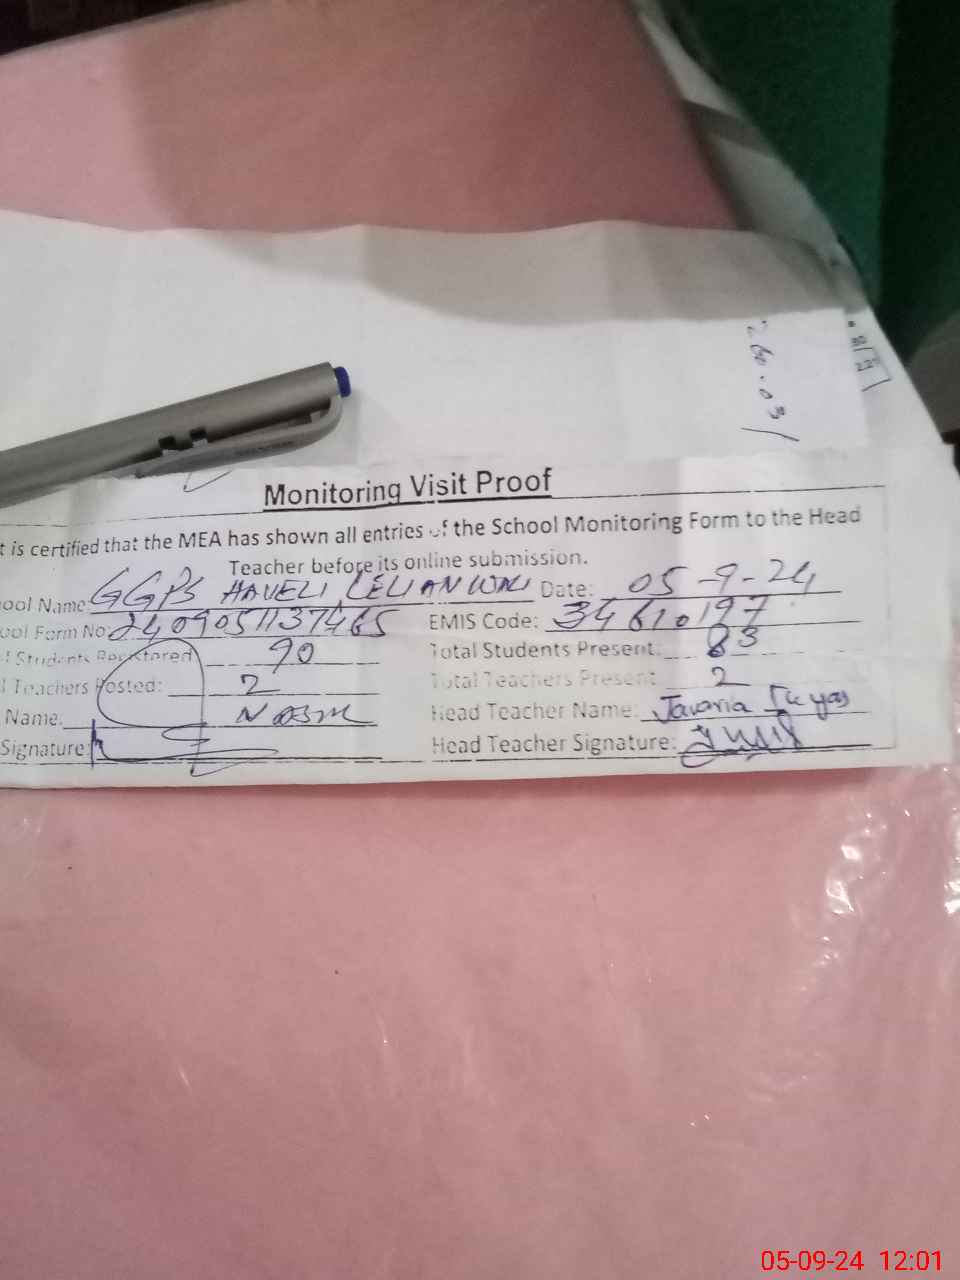 260.03/
Monitoring Visit Proof
t is certified that the MEA has shown all entries of the School Monitoring Form to the Head
Teacher before its online submission.
ool Name: GGPS HAVELI LELIANWALI Date: 05-9-24
ool Form No: 2409051137465 EMIS Code: 34610197
f Students Registered 90 Total Students Present: 83
l Teachers Posted: 2 Total Teachers Present 2
Name: Head Teacher Name: Javaria
Signature: Head Teacher Signature:
05-09-24 12:01